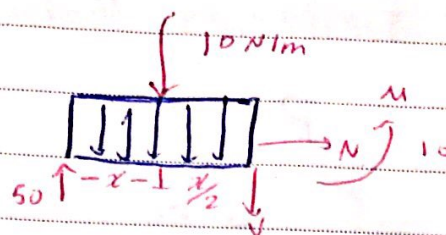 10 N/m
M
N 10
50 - x - x/2
V